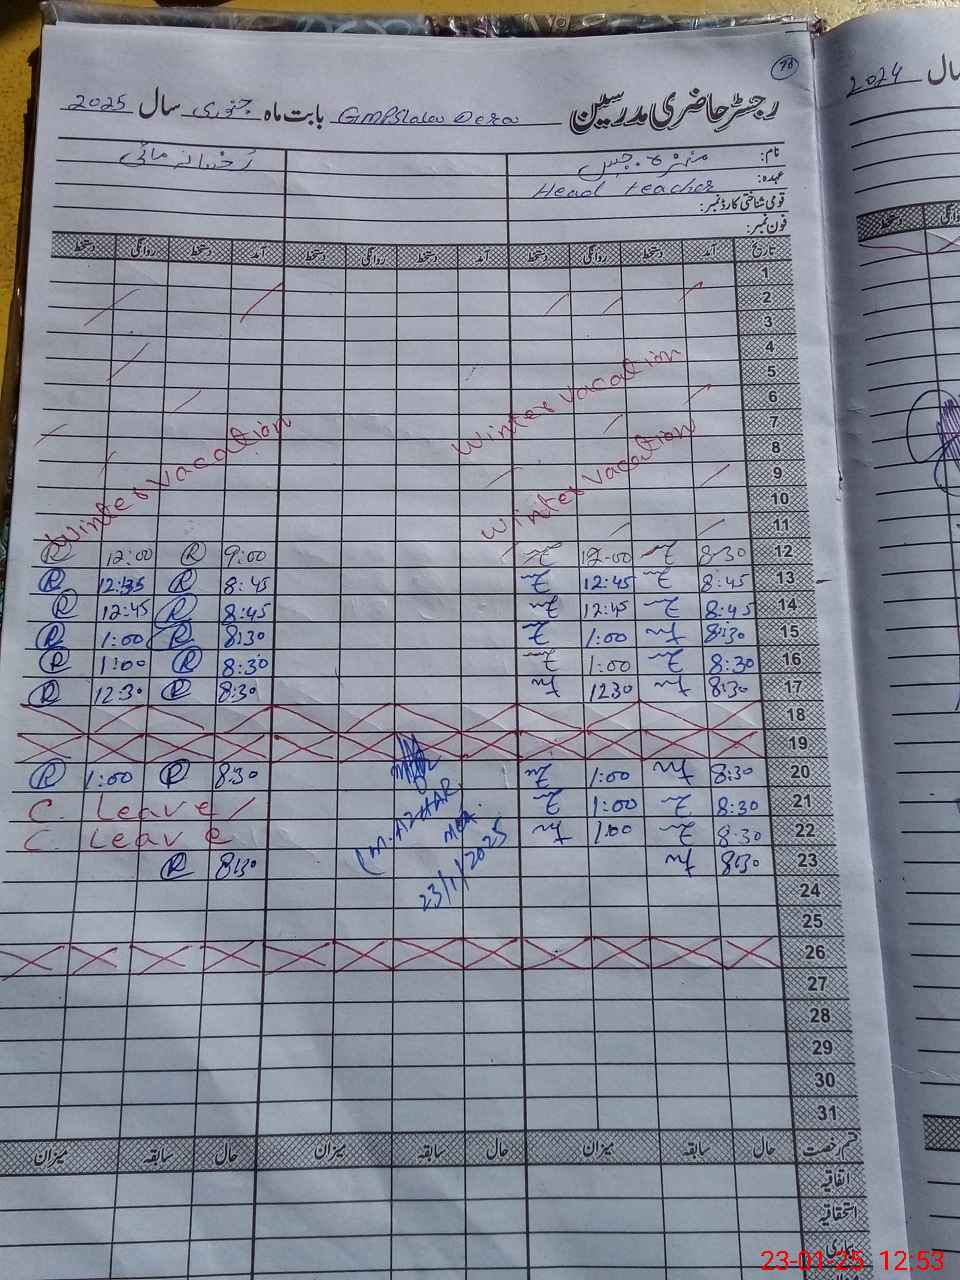 78
رجسٹر حاضری مدرسین GMPS بابت ماہ جنوری سال 2025
2024 سال
نام:
رخسانہ مائی
عہدہ: Head teacher
قومی شناختی کارڈ نمبر:
فون نمبر:
تاریخ آمد دستخط روانگی دستخط آمد دستخط روانگی دستخط آمد دستخط روانگی دستخط
1
2
3
4
5
Winter vacation
6
7
8
Winter vacation
9
Winter vacation
10
11
12 8:30 12:00 9:00 R 12:00 R
13 8:45 12:45 8:45 R 12:35 R
14 8:45 12:45 8:45 R 12:45 R
15 8:30 1:00 8:30 R 1:00 R
16 8:30 1:00 8:30 R 1:00 R
17 8:30 1230 8:30 R 12:30 R
18
19
20 8:30 1:00 8:30 R 1:00 R
21 8:30 1:00 C. Leave
22 8:30 1:00 C. Leave
23 8:30 8:30 R
(M. AZHAR)
MEA
23/1/2025
24
25
26
27
28
29
30
31
قسم رخصت حال سابقہ میزان حال سابقہ میزان حال سابقہ میزان
اتفاقیہ
استحقاقیہ
بیماری
23-01-25 12:53